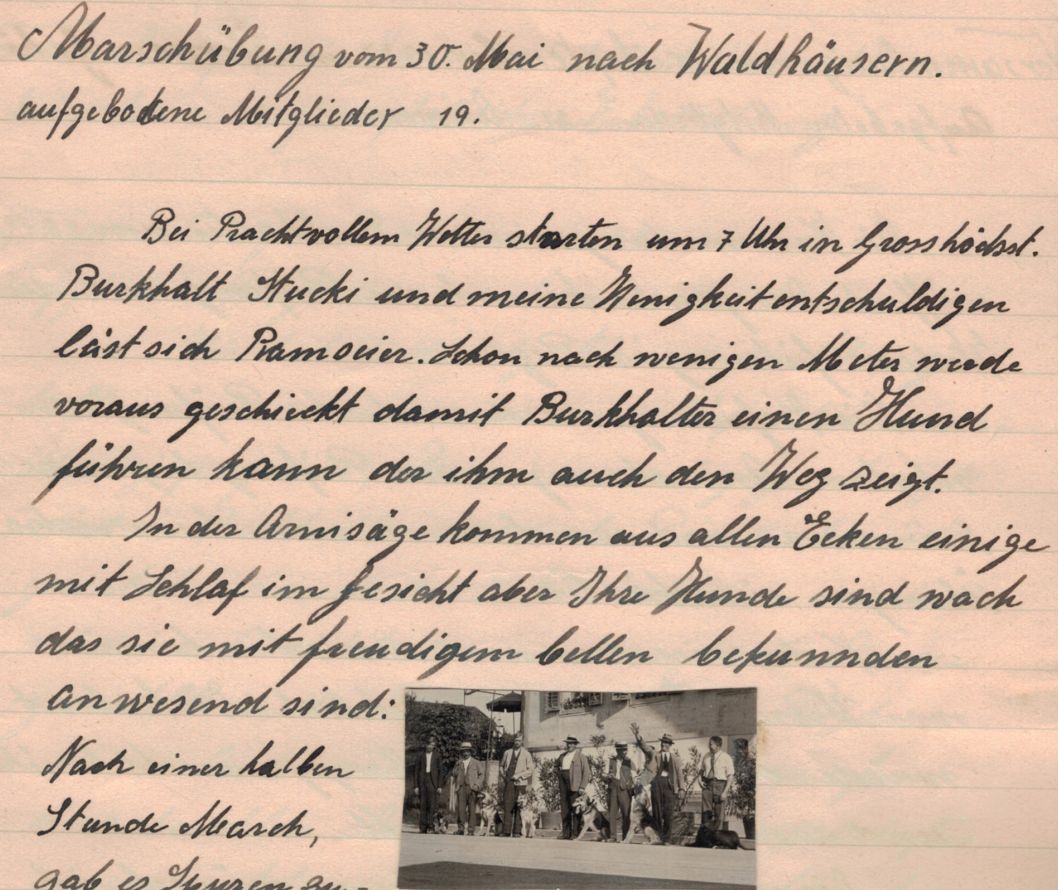 Marschübung vom 30. Mai nach Waldhäusern.
aufgebotene Mitglieder 19.
Bei Prachtvollem Wetter starten um 7 Uhr in Grosshöchst.
Burkhalt Stucki und meine Wenigkeit entschuldigen
läst sich Ramseier. Schon nach wenigen Meter werde
voraus geschieckt damit Burkhalter einen Hund
führen kann der ihm auch den Weg zeigt.
In der Arnisäge kommen aus allen Ecken einige
mit Schlaf im Gesicht aber Ihre Hunde sind wach
das sie mit freudigem bellen bekunnden
anwesend sind:
Nach einer halben
Stunde March,
gab es